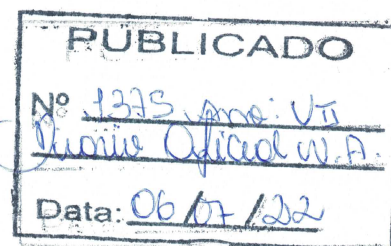 PUBLICADO
Nº 1375 Ano: VII
Diário Oficial N.A.
Data: 06/07/22